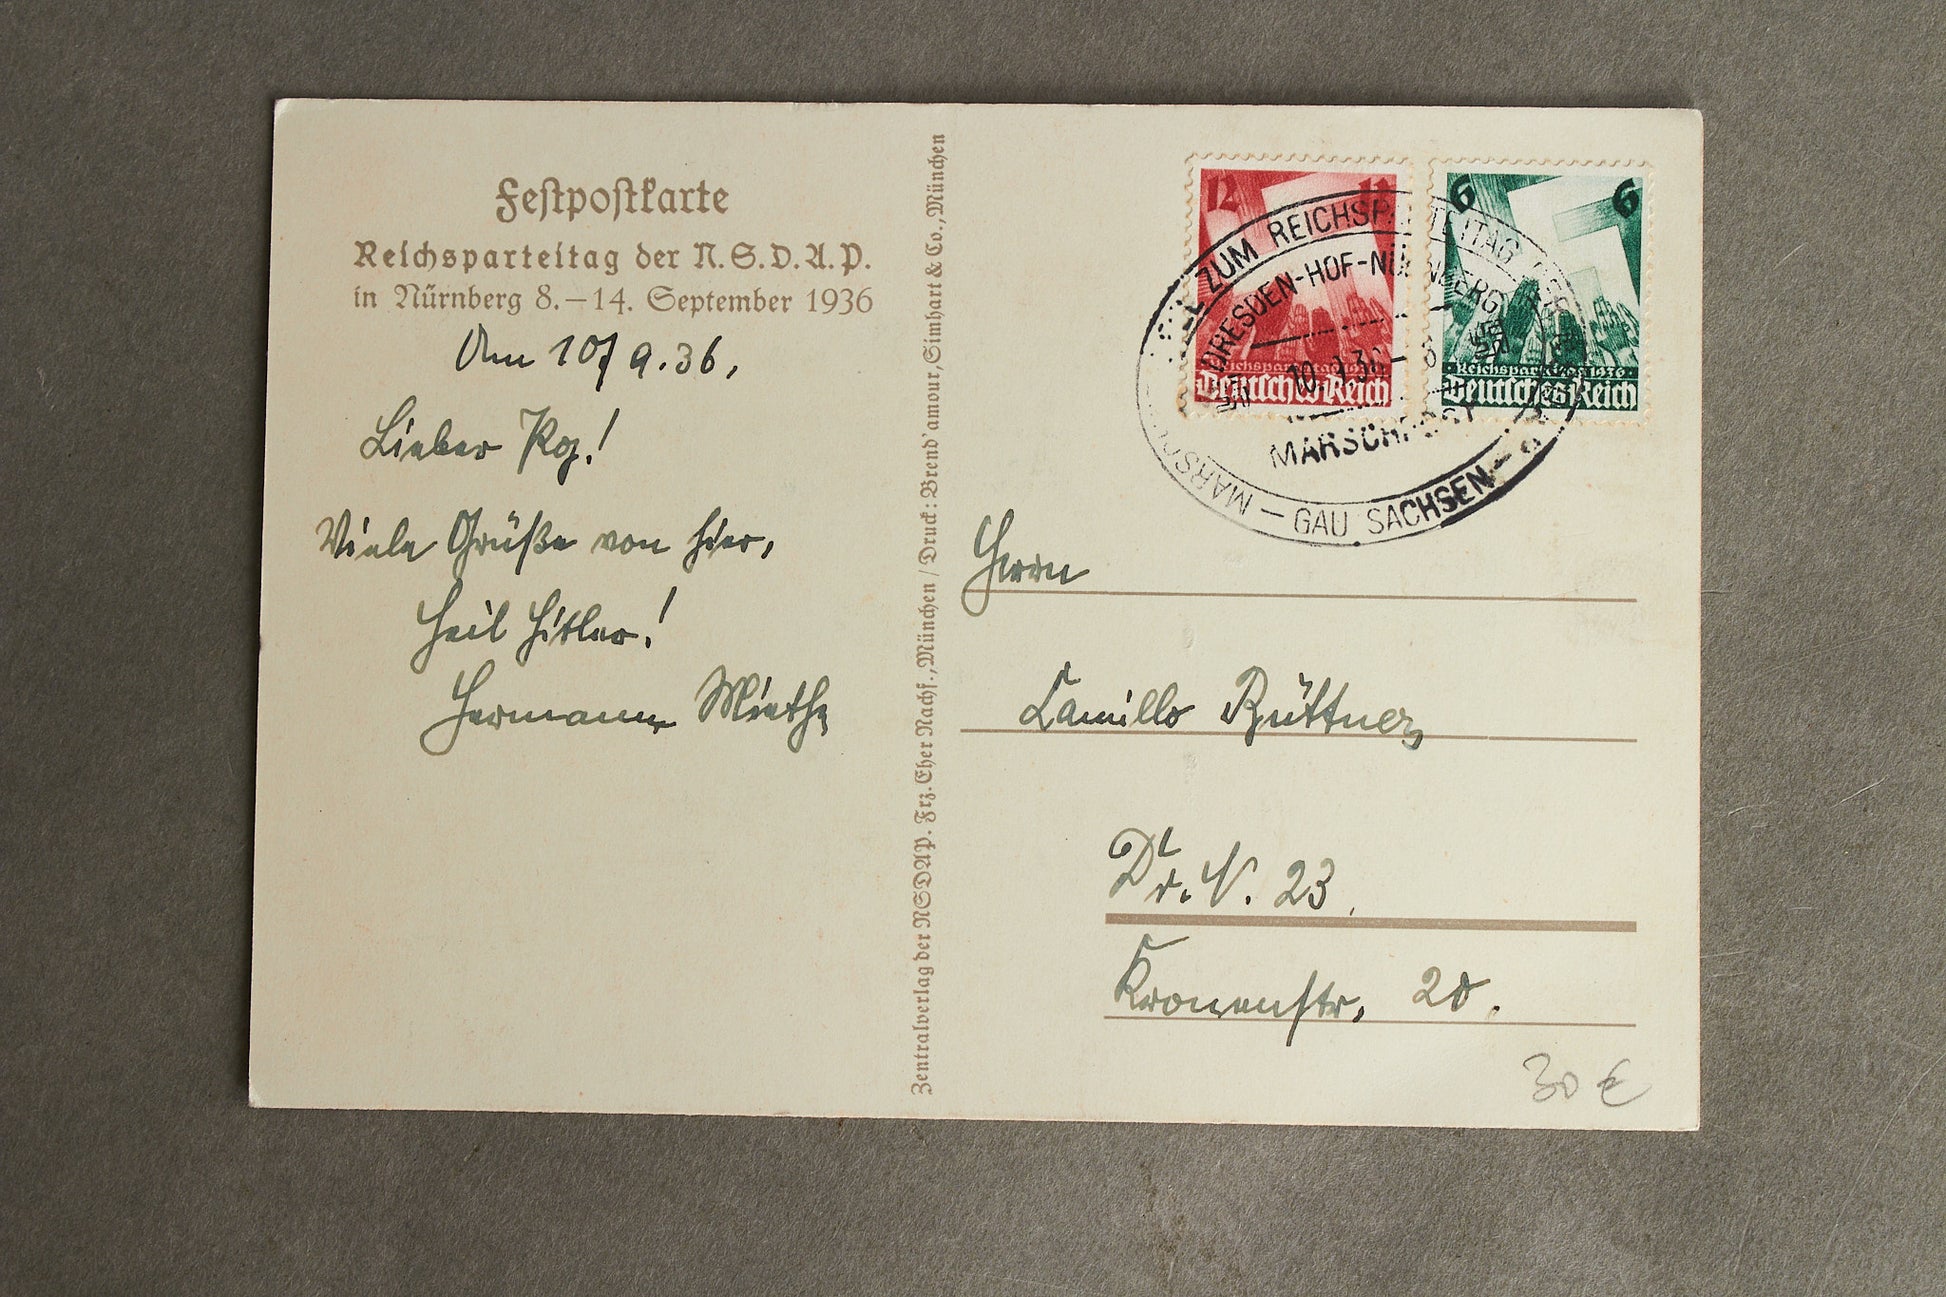 Festpostkarte
Reichsparteitag der N.S.D.A.P.
in Nürnberg 8.–14. September 1936
Am 10/9.36,
Lieber Pg.!
Viele Grüße von hier,
Heil Hitler!
Hermann Miethe
Zentralverlag der NSDAP. Frz. Eher Nachf., München / Druck: Brend'amour, Simhart & Co., München
12 12
Reichsparteitag 1936
Deutsches Reich
6 6
Reichsparteitag 1936
Deutsches Reich
ZUM REICHSPARTEITAG
DRESDEN-HOF-NÜRNBERG
10.9.36
MARSCHPOST
GAU SACHSEN
Herrn
Camillo Büttner,
Dr. N. 23,
Kronenstr. 20.
30 €